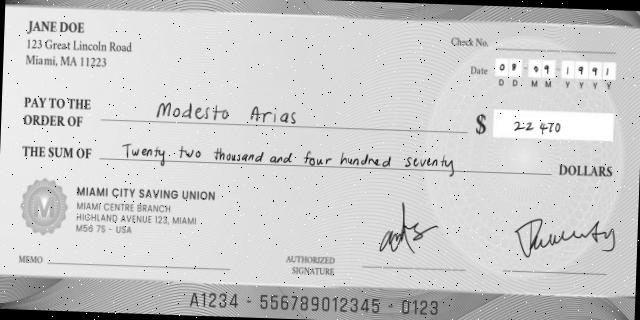 JANE DOE
123 Great Lincoln Road
Miami, MA 11223
Check No.
Date 08-09-1991
D D M M Y Y Y Y
PAY TO THE ORDER OF Modesto Arias $ 22 470
THE SUM OF Twenty two thousand and four hundred seventy DOLLARS
MIAMI CITY SAVING UNION
MIAMI CENTRE BRANCH
HIGHLAND AVENUE 123, MIAMI
M56 7S - USA
MEMO
AUTHORIZED SIGNATURE
A1234 - 556789012345 - 0123